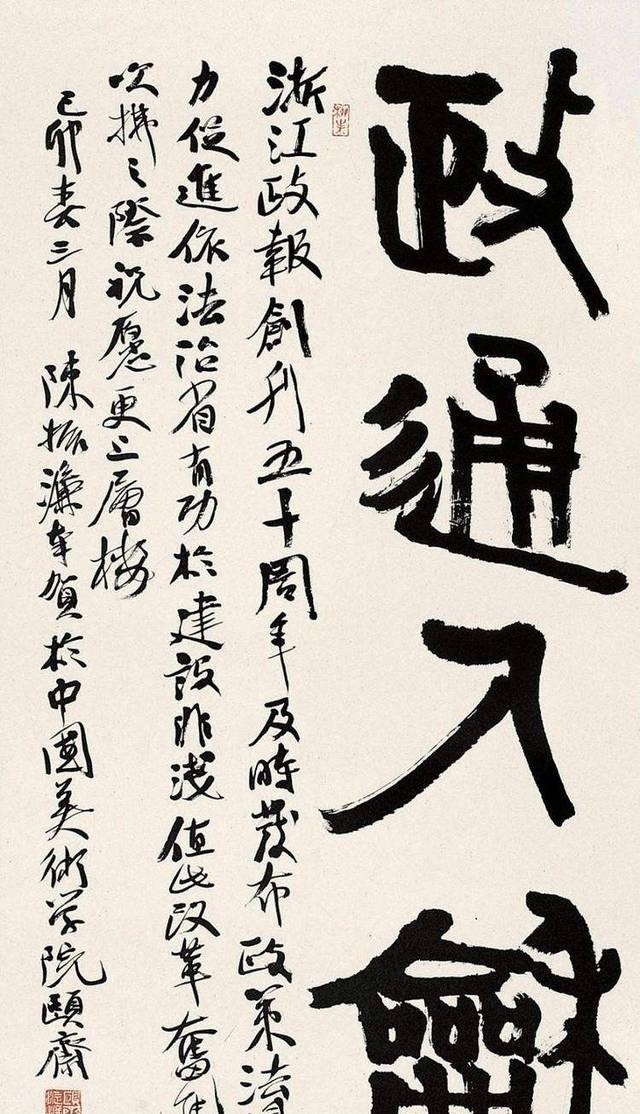 政通人龢
浙江政報創刊五十周年及時發布政策
力促進依法治省有功於建設非淺值此改革奮風
吹拂之際祝愿更上層樓
己卯春三月 陳振濂奉賀於中國美術学院頤齋